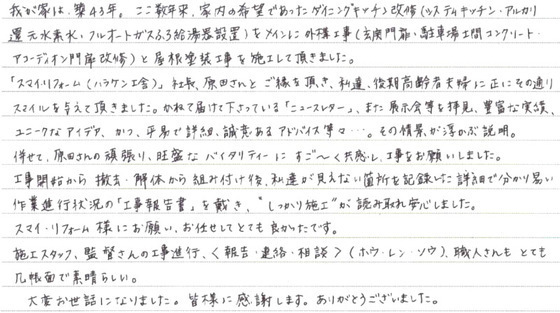 我が家は、築43年。ここ数年来、家内の希望であったダイニングキッチン改修(システィキッチン・アルカリ
還元水素水・フルオートガスふろ給湯器設置)をメインに外構工事(玄関門扉・駐車場土間コンクリート・
アコーデオン門扉改修)と屋根塗装工事を施工して頂きました。
「スマイ・リフォーム(ハラケン工舎)」社長、原田さんとご縁を頂き、私達、後期高齢者夫婦に正にその通り
スマイルを与えて頂きました。かねて届けて下さっている「ニュースレター」、また展示会等を拝見、豊富な実績、
ユニークなアイデア、かつ、平易で詳細、誠意あるアドバイス等々…。その情景が浮かぶ説明。
併せて、原田さんの頑張り、旺盛なバイタリティーにすご〜く共感し、工事をお願いしました。
工事開始から撤去・解体から組み付け後、私達が見えない箇所を記録した詳細で分かり易い
作業進行状況の「工事報告書」を戴き、"しっかり施工"が読み取れ安心しました。
スマイ・リフォーム様にお願い、お任せしてとても良かったです。
施工スタッフ、監督さんの工事進行、<報告・連絡・相談>(ホウ・レン・ソウ)、職人さんもとても
几帳面で素晴らしい。
大変お世話になりました。皆様に感謝します。ありがとうございました。